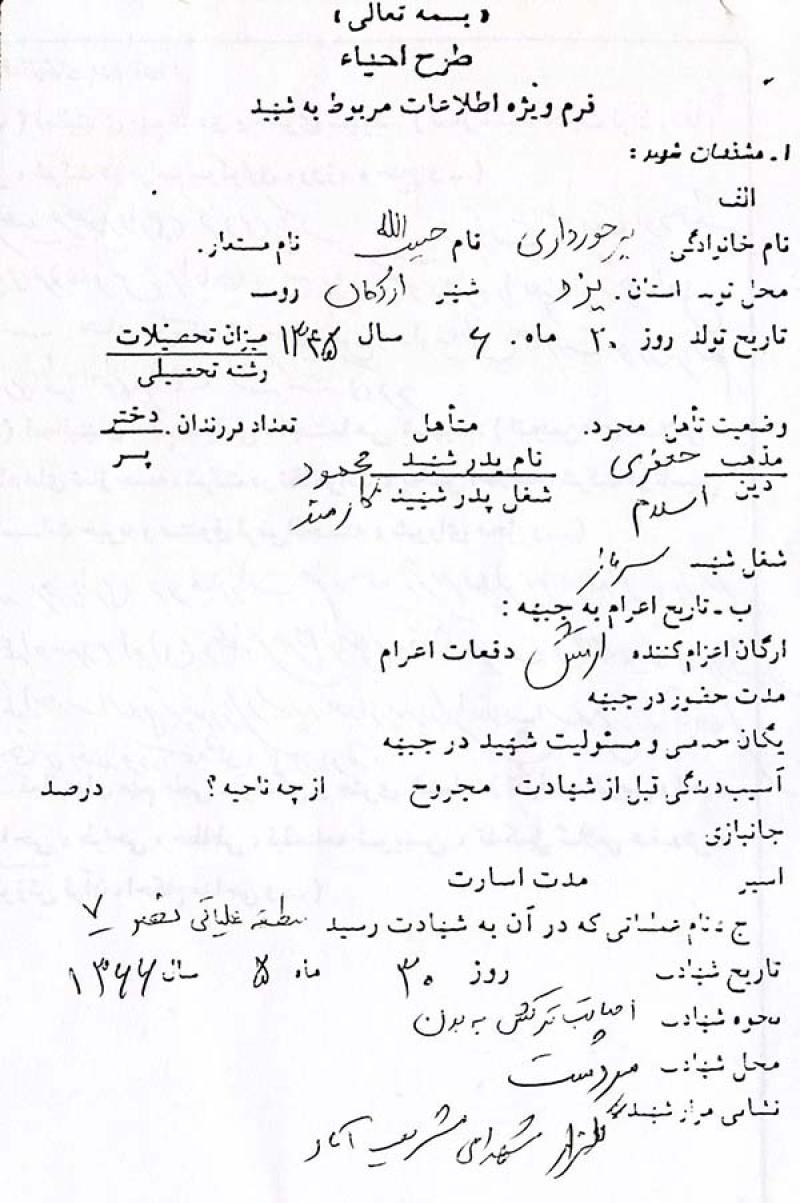 (بسمه تعالی)
طرح احیاء
فرم ویژه اطلاعات مربوط به شهید
۱- مشخصات شهید:
الف
نام خانوادگی برخورداری نام حبیب الله نام مستعار.
محل تولد استان. یزد شهر اردکان روستا
تاریخ تولد روز ۲۰ ماه. ۶ سال ۱۳۴۵ میزان تحصیلات
رشته تحصیلی
وضعیت تأهل مجرد. متأهل تعداد فرزندان. دختر
پسر
مذهب جعفری نام پدر شهید محمود
دین اسلام شغل پدر شهید کارمند
شغل شهید سرباز
ب- تاریخ اعزام به جبهه:
ارگان اعزام کننده ارتش دفعات اعزام
مدت حضور در جبهه
یگان خدمتی و مسئولیت شهید در جبهه
آسیب دیدگی قبل از شهادت مجروح از چه ناحیه؟ درصد
جانبازی
اسیر مدت اسارت
ج - نام عملیاتی که در آن به شهادت رسید منطقه عملیاتی نصر ۷
تاریخ شهادت روز ۳۰ ماه ۵ سال ۱۳۶۶
نحوه شهادت اصابت ترکش به بدن
محل شهادت سردشت
نشانی مزار شهید گلزار شهدای شریف آباد